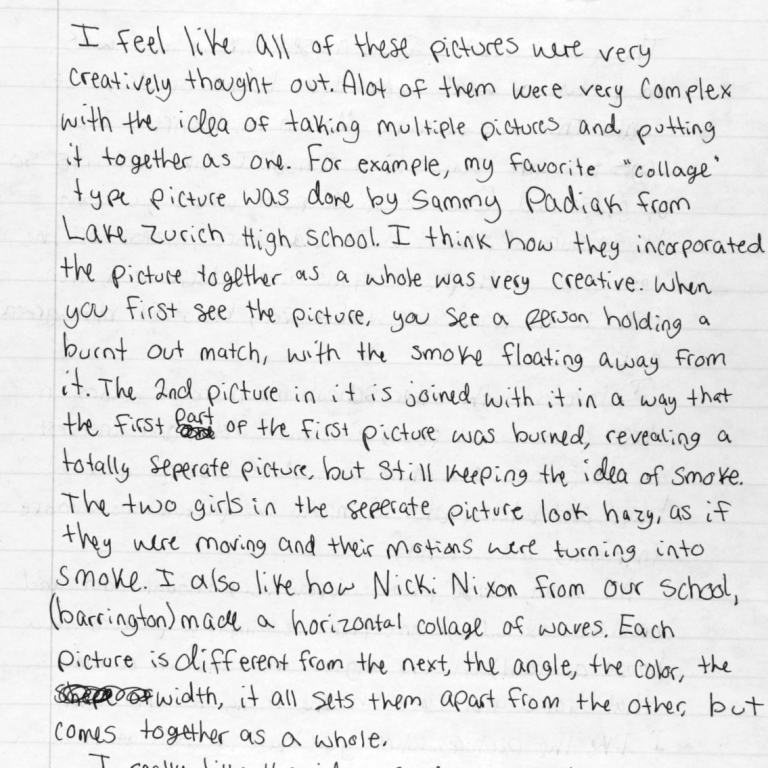 I feel like all of these pictures were very
creatively thought out. Alot of them were very complex
with the idea of taking multiple pictures and putting
it together as one. For example, my favorite "collage"
type picture was done by Sammy Padiak from
Lake Zurich High school. I think how they incorporated
the picture together as a whole was very creative. When
you first see the picture, you see a person holding a
burnt out match, with the smoke floating away from
it. The 2nd picture in it is joined with it in a way that
the first part of the first picture was burned, revealing a
totally seperate picture, but still keeping the idea of smoke.
The two girls in the seperate picture look hazy, as if
they were moving and their motions were turning into
smoke. I also like how Nicki Nixon from our school,
(barrington) made a horizontal collage of waves. Each
picture is different from the next, the angle, the color, the
width, it all sets them apart from the other, but
comes together as a whole.
I really like the